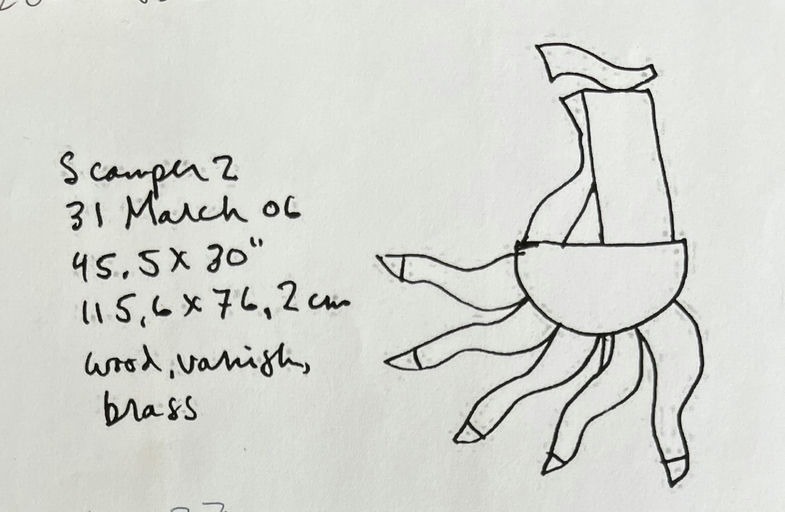 Scamper 2
31 March 06
45.5 x 30"
115,6 x 76,2 cm
wood, vanish,
brass